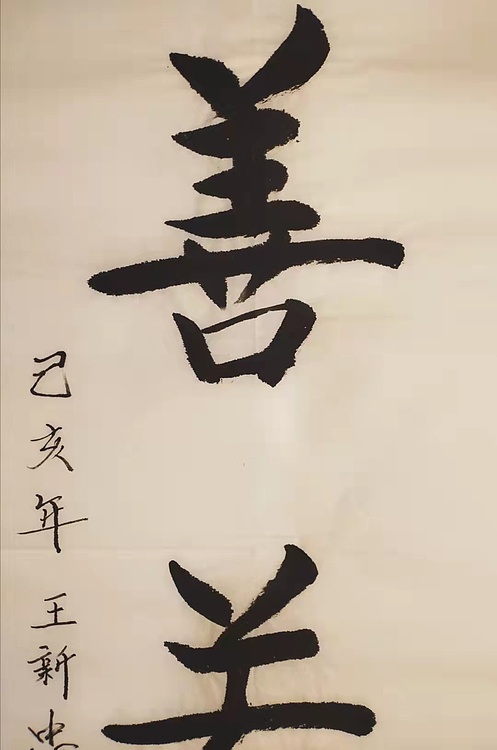 善
己亥年 王新忠